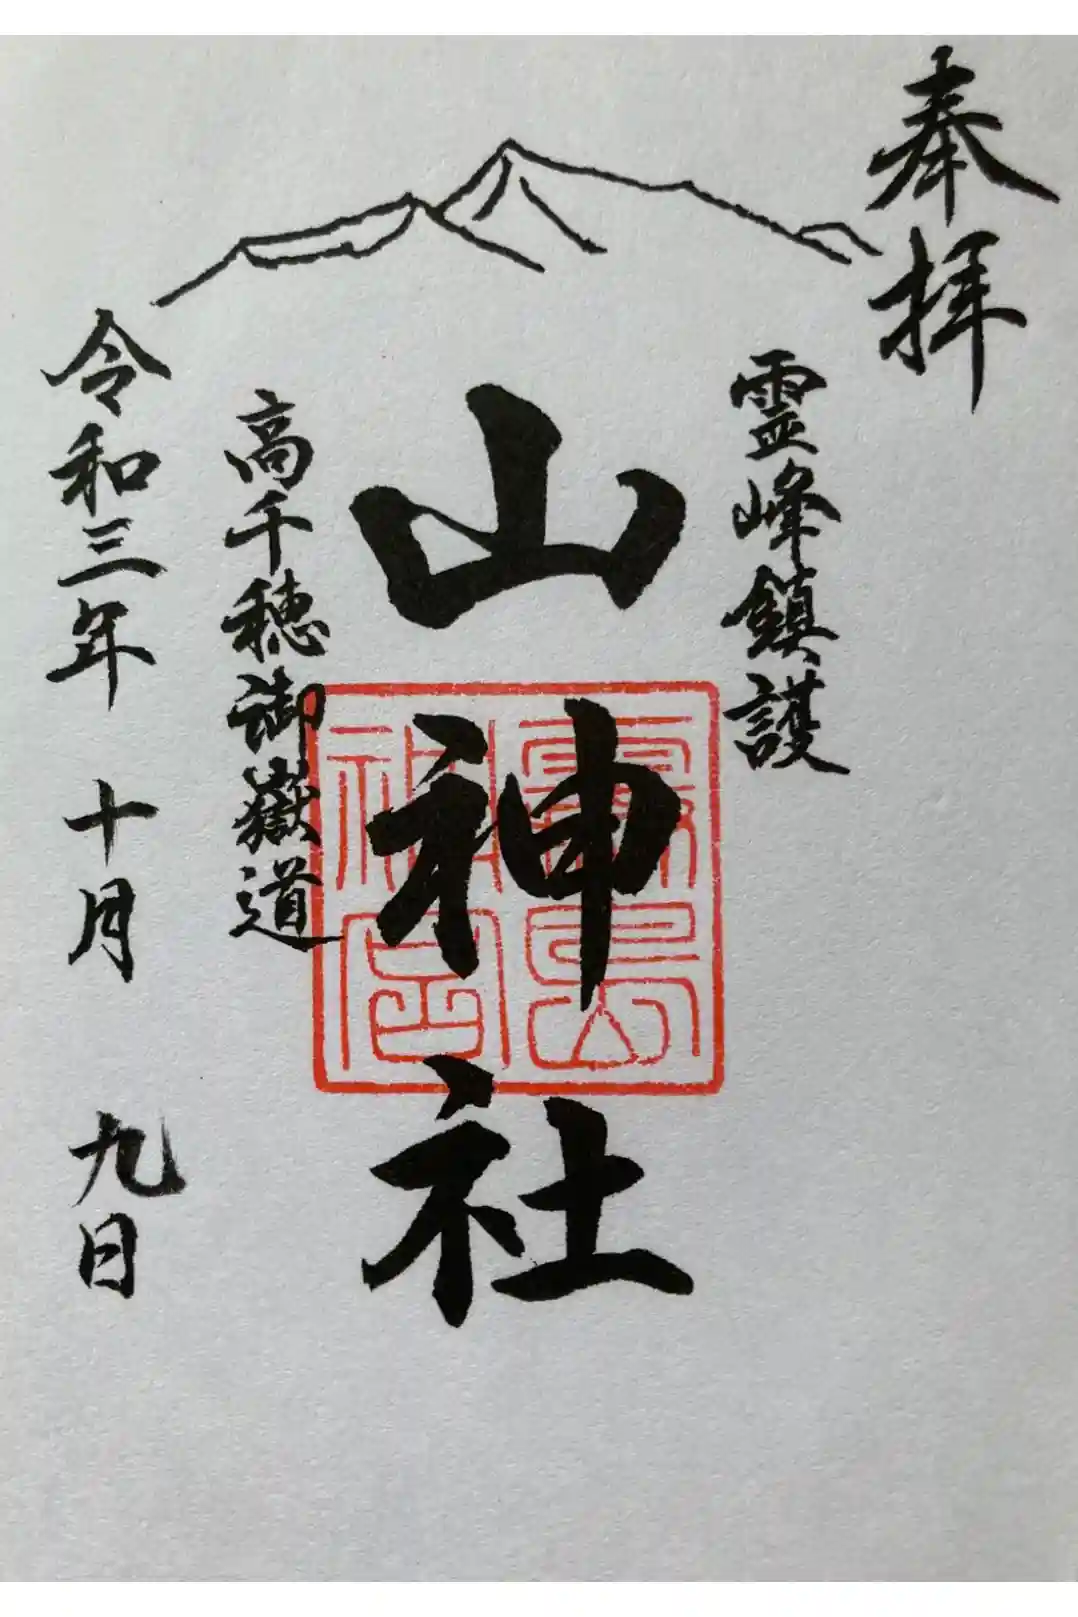 奉拝
霊峰鎮護
山神社
霧島
神宮
高千穂御嶽道
令和三年 十月 九日